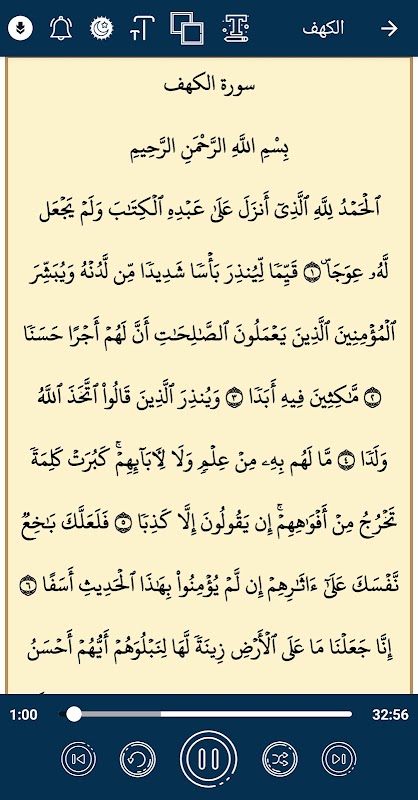 الكهف
سورة الكهف
بِسْمِ اللَّهِ الرَّحْمَنِ الرَّحِيمِ
ٱلْحَمْدُ لِلَّهِ ٱلَّذِىٓ أَنزَلَ عَلَىٰ عَبْدِهِ ٱلْكِتَٰبَ وَلَمْ يَجْعَل
لَّهُۥ عِوَجَاۜ ۝١ قَيِّمًا لِّيُنذِرَ بَأْسًا شَدِيدًا مِّن لَّدُنْهُ وَيُبَشِّرَ
ٱلْمُؤْمِنِينَ ٱلَّذِينَ يَعْمَلُونَ ٱلصَّٰلِحَٰتِ أَنَّ لَهُمْ أَجْرًا حَسَنًا
۝٢ مَّٰكِثِينَ فِيهِ أَبَدًا ۝٣ وَيُنذِرَ ٱلَّذِينَ قَالُوا۟ ٱتَّخَذَ ٱللَّهُ
وَلَدًا ۝٤ مَّا لَهُم بِهِۦ مِنْ عِلْمٍ وَلَا لِءَابَآئِهِمْ ۚ كَبُرَتْ كَلِمَةً
تَخْرُجُ مِنْ أَفْوَٰهِهِمْ ۚ إِن يَقُولُونَ إِلَّا كَذِبًا ۝٥ فَلَعَلَّكَ بَٰخِعٌ
نَّفْسَكَ عَلَىٰٓ ءَاثَٰرِهِمْ إِن لَّمْ يُؤْمِنُوا۟ بِهَٰذَا ٱلْحَدِيثِ أَسَفًا ۝٦
إِنَّا جَعَلْنَا مَا عَلَى ٱلْأَرْضِ زِينَةً لَّهَا لِنَبْلُوَهُمْ أَيُّهُمْ أَحْسَنُ
1:00
32:56